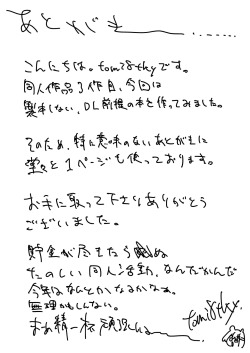 あとがき
こんにちは。tomi8thyです。
同人作品3作目、今回は
製本しない、DL前提の本を作ってみました。
そのため、特に意味のないあとがきに
堂々と1ページも使っております。
お手に取って下さりありがとう
ございました。
貯金が尽きたら
たのしい同人活動、なんだかんだ
今年はなんとかなるかなぁ。
無理かもしれない。
まあ精一杯頑張るしか
tomi8thy.